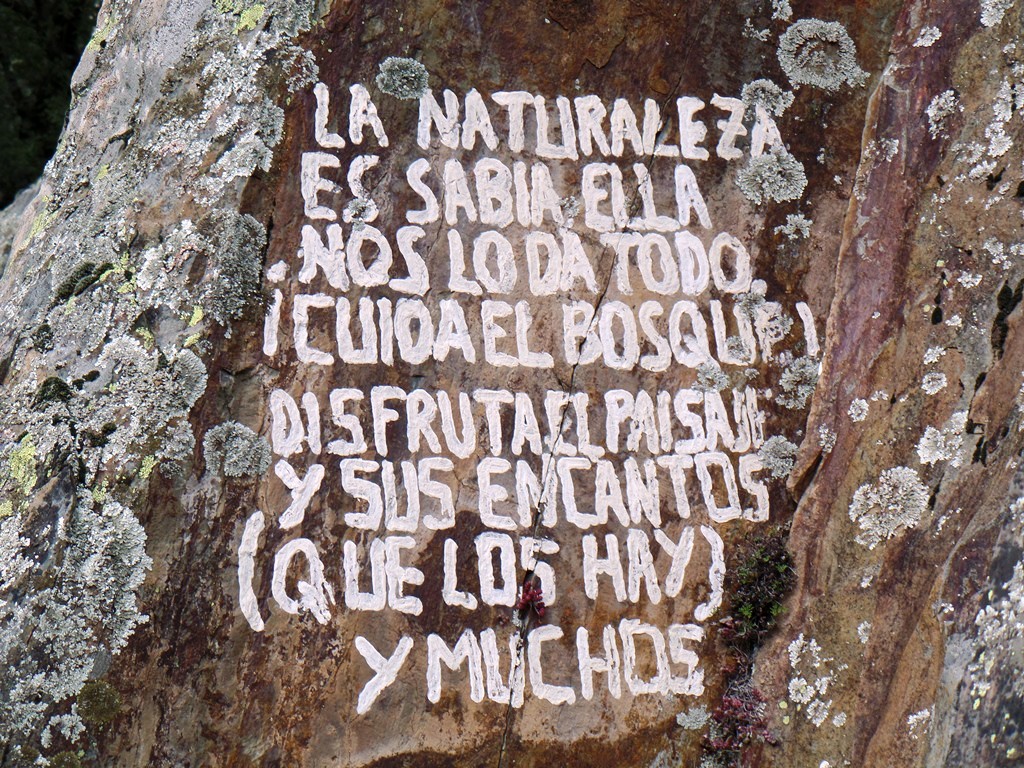 LA NATURALEZA
ES SABIA ELLA
NOS LO DA TODO
¡CUIDA EL BOSQUE!
DISFRUTA EL PAISAJE
Y SUS ENCANTOS
(QUE LOS HAY)
Y MUCHOS